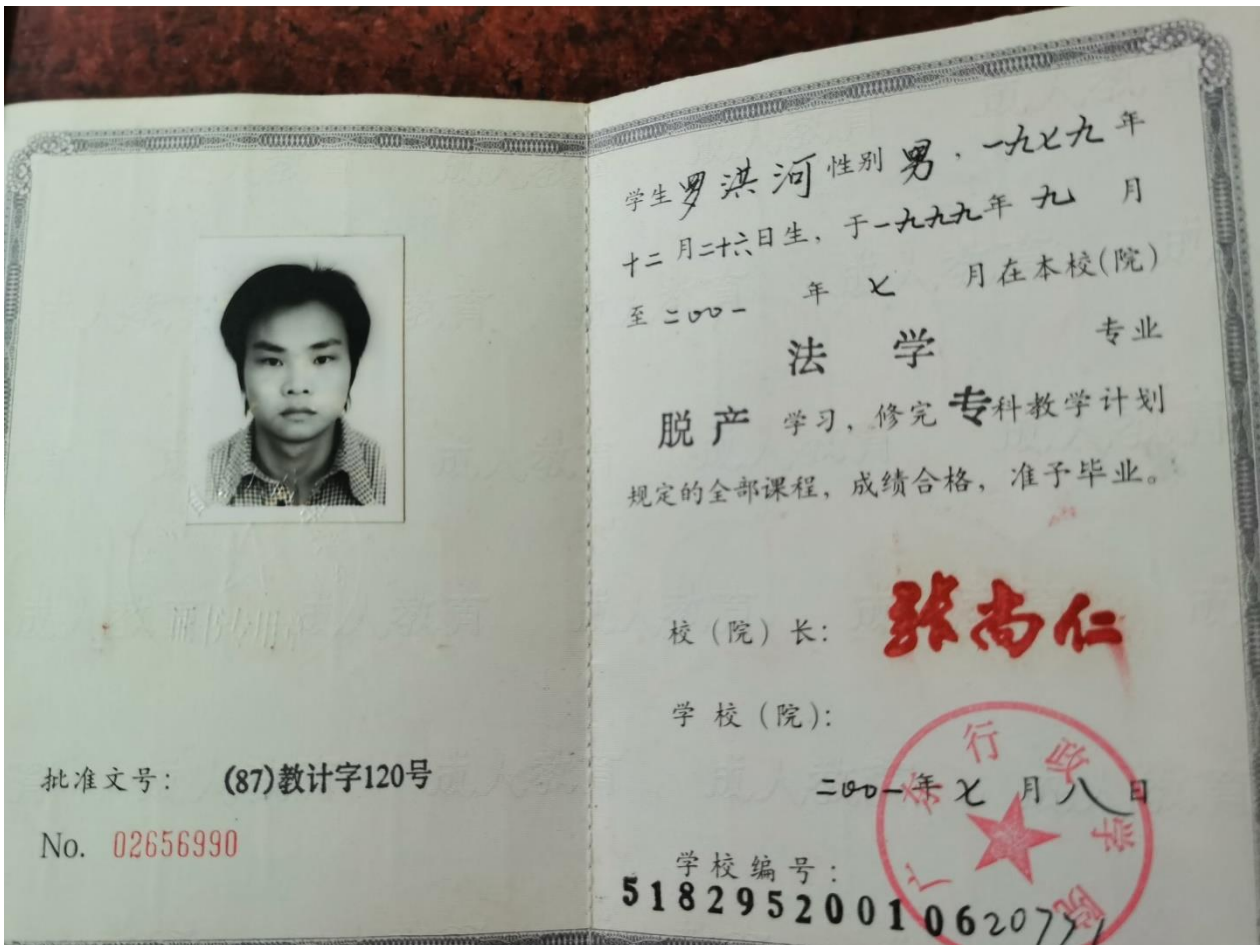 批准文号： (87)教计字120号
No. 02656990
学生罗洪河性别男，一九七九年
十二月二十六日生，于一九九九年九月
至二〇〇一年七月在本校(院)
法学专业
脱产学习，修完专科教学计划
规定的全部课程，成绩合格，准予毕业。
校（院）长：张尚仁
学校（院）：
广东行政学院
二〇〇一年七月八日
学校编号：
518295200106